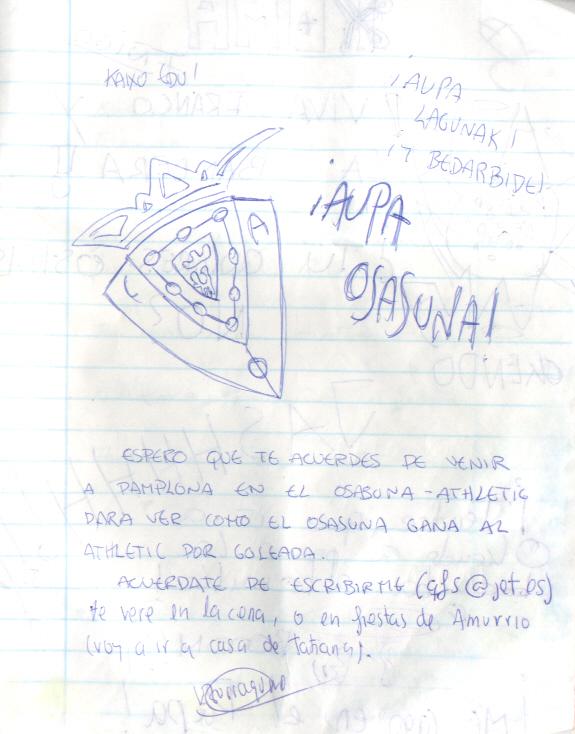 KAIXO EDU!
¡AUPA
LAGUNAK!
¡7 BEDARBIDE!
¡AUPA
OSASUNA!
A
C
ESPERO QUE TE ACUERDES DE VENIR
A PAMPLONA EN EL OSASUNA-ATHLETIC
PARA VER COMO EL OSASUNA GANA AL
ATHLETIC POR GOLEADA.
ACUERDATE DE ESCRIBIRME (@jet.es)
te vere en la cena, o en fiestas de Amurrio
(voy a ir a casa de tatiana).